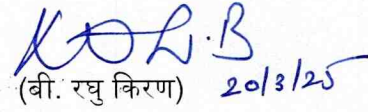 (बी. रघु किरण) 20/3/25